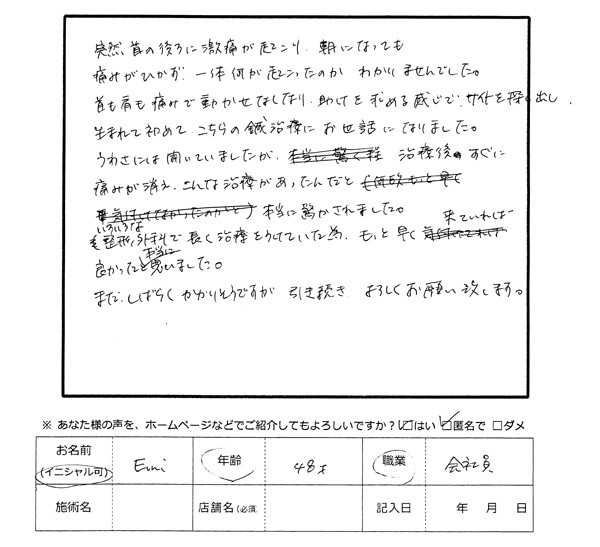 突然首の後ろに激痛が起こり、朝になっても
痛みがひかず、一体何が起こったのか わかりませんでした。
首も肩も痛みで動かせなくなり、助けを求める感じで、サイトを探し出し、
生まれて初めて、こちらの鍼治療にお世話になりました。
うわさには聞いていましたが、本当に驚く程 治療後、すぐに
痛みが消え、こんな治療があったんだと
本当に驚かされました。
いろいろな
整形外科で長く治療をうけていた為、もっと早く 来ていれば
良かったと本当に思いました。
まだ、しばらくかかりそうですが 引き続き よろしくお願い致します。
※ あなた様の声を、ホームページなどでご紹介してもよろしいですか？☑はい ☑匿名で □ダメ
お名前 (イニシャル可) Emi 年齢 48才 職業 会社員
施術名 店舗名(必須 記入日 年 月 日